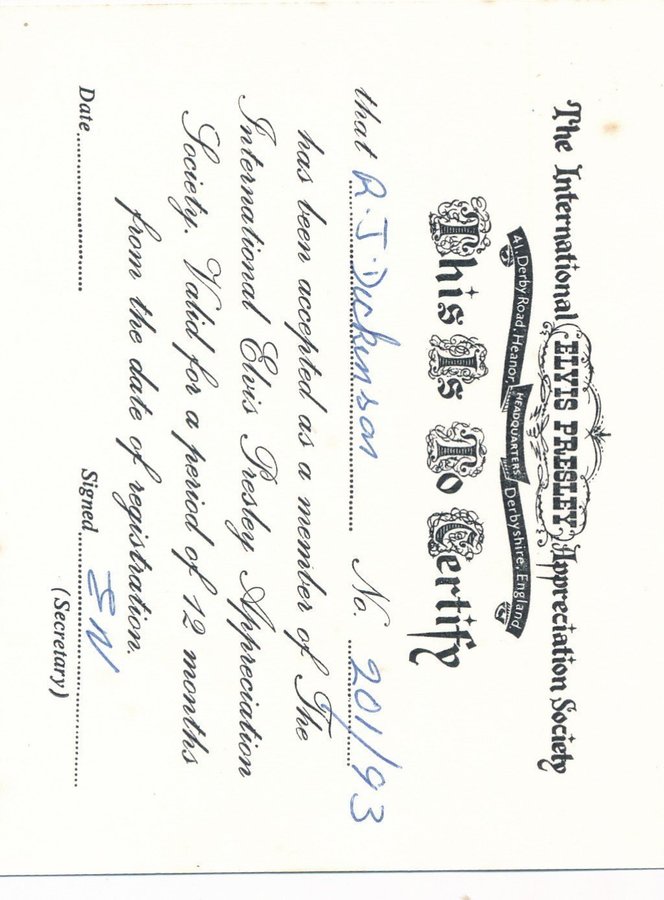 The International ELVIS PRESLEY Appreciation Society
41, Derby Road, Heanor, HEADQUARTERS Derbyshire, England
This Is To Certify
that R. J. Dickinson No. 201/93
has been accepted as a member of The
International Elvis Presley Appreciation
Society. Valid for a period of 12 months
from the date of registration.
Date Signed SN
(Secretary)